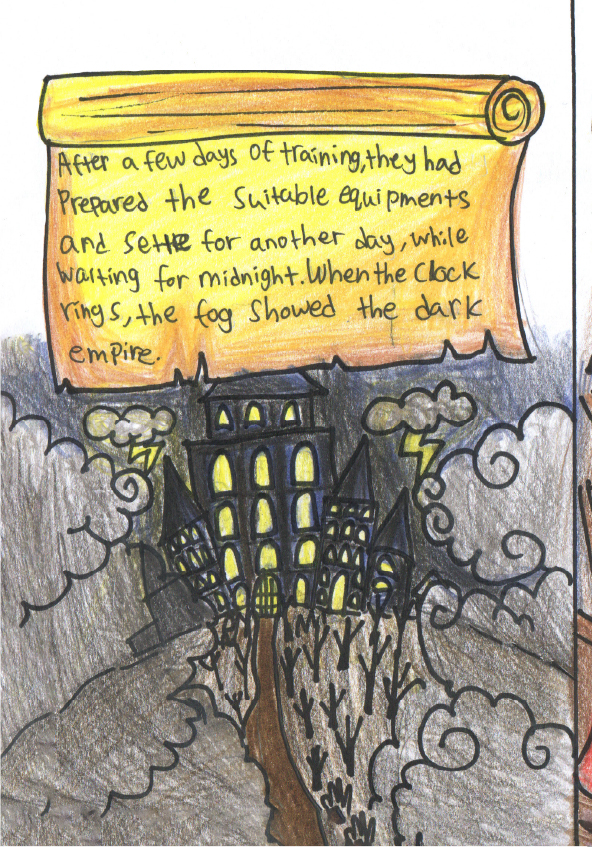 After a few days of training, they had
Prepared the suitable equipments
and settle for another day, while
waiting for midnight. When the Clock
rings, the fog showed the dark
empire.